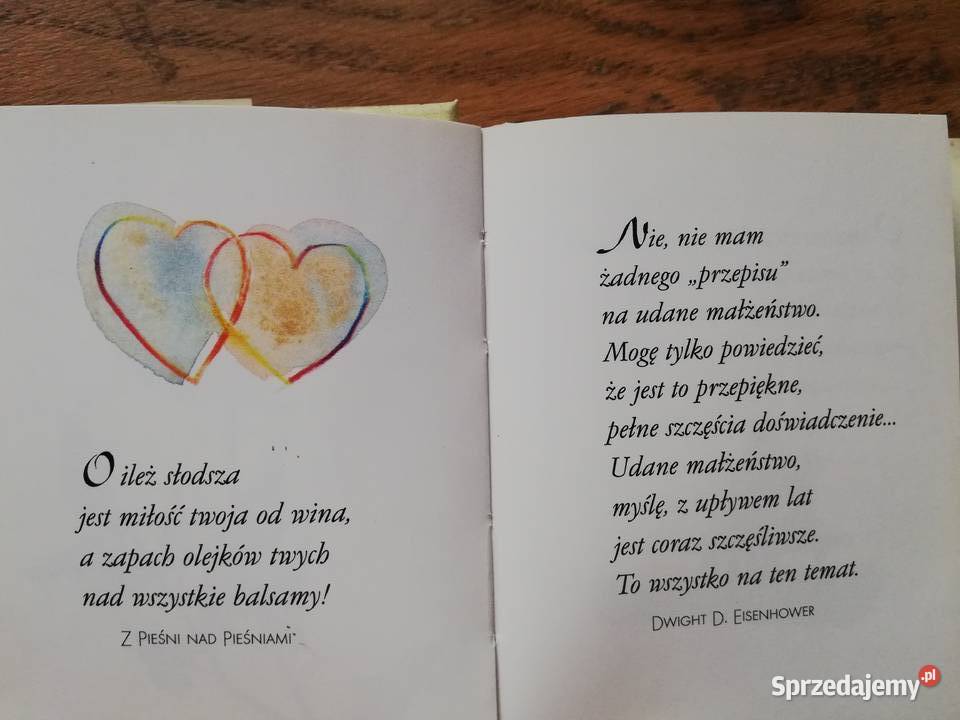 O ileż słodsza
jest miłość twoja od wina,
a zapach olejków twych
nad wszystkie balsamy!
Z Pieśni nad Pieśniami
Nie, nie mam
żadnego „przepisu”
na udane małżeństwo.
Mogę tylko powiedzieć,
że jest to przepiękne,
pełne szczęścia doświadczenie...
Udane małżeństwo,
myślę, z upływem lat
jest coraz szczęśliwsze.
To wszystko na ten temat.
Dwight D. Eisenhower
Sprzedajemy.pl